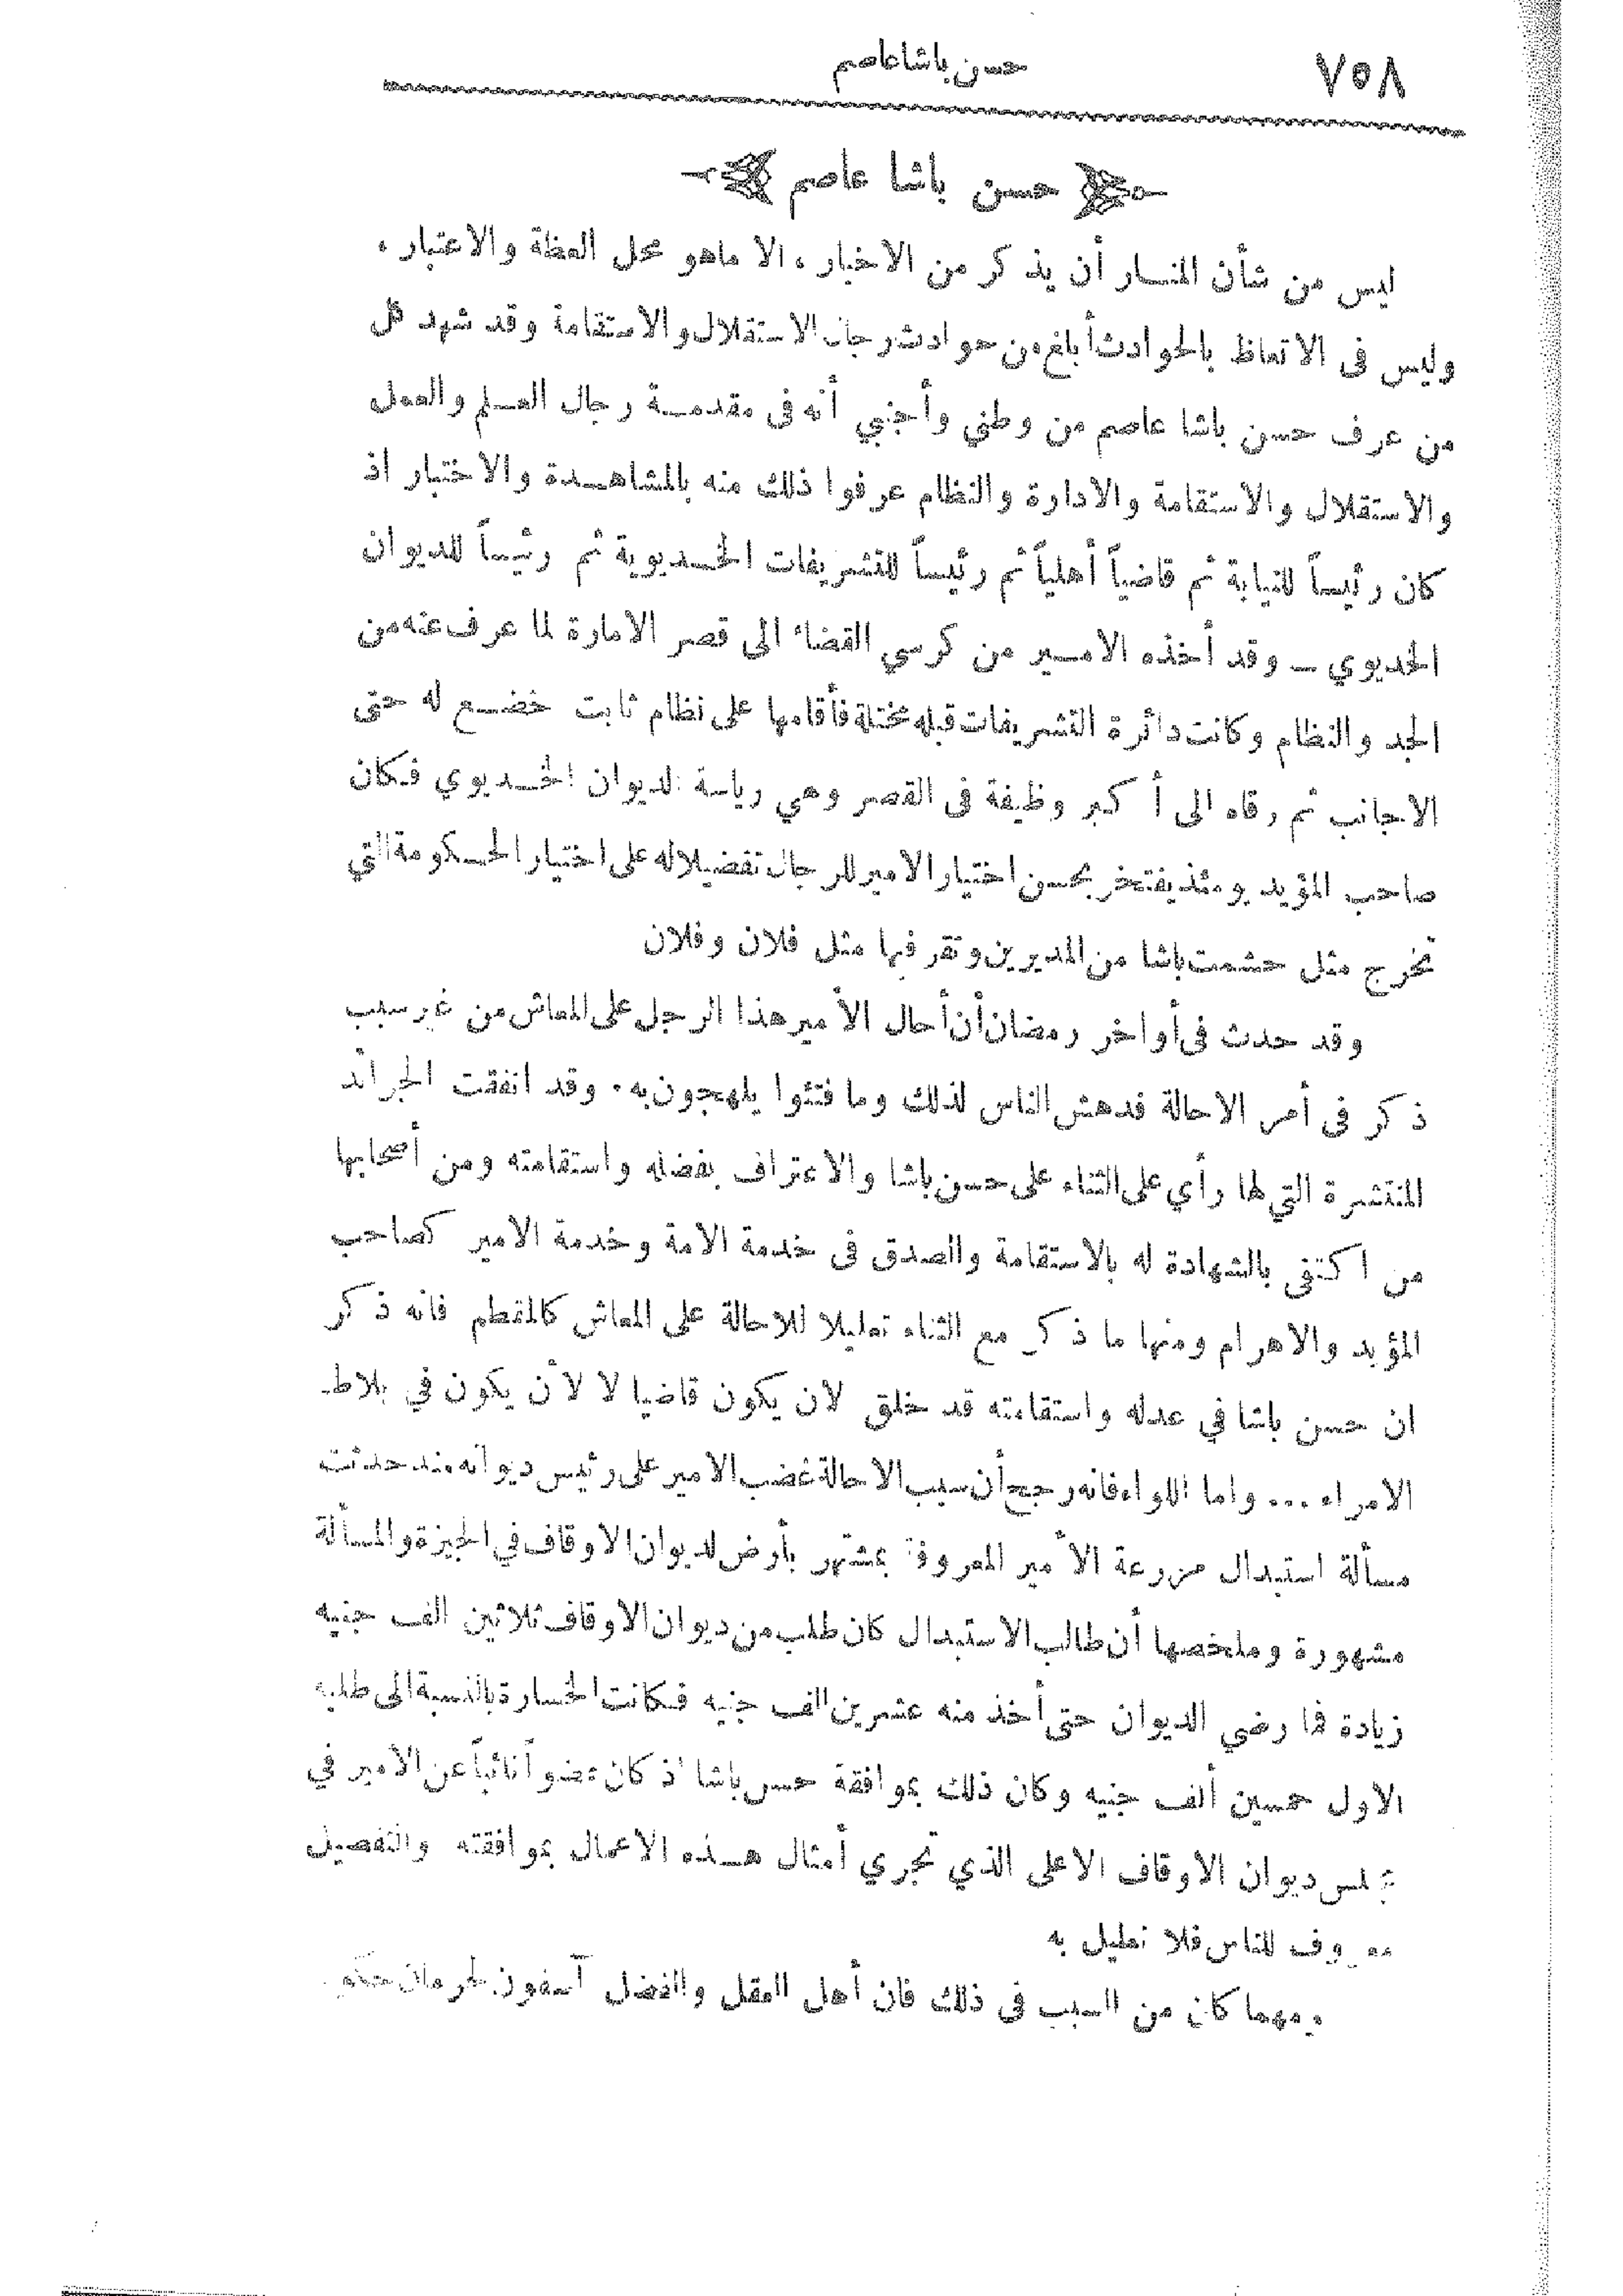 ٧٥٨
حسن باشا عاصم
حسن باشا عاصم
ليس من شأن المنار أن يذكر من الاخبار ، الا ماهو محل العظة والاعتبار ،
وليس فى الاتعاظ بالحوادث أبلغ من حوادث رجال الاستقلال والاستقامة وقد شهد كل
من عرف حسن باشا عاصم من وطني وأجنبي أنه فى مقدمة رجال العلم والعمل
والاستقلال والاستقامة والادارة والنظام عرفوا ذلك منه بالمشاهدة والاختبار اذ
كان رئيساً للنيابة ثم قاضياً أهلياً ثم رئيساً للتشريفات الخديوية ثم رئيساً للديوان
الخديوي – وقد أخذه الامير من كرسي القضاء الى قصر الامارة لما عرف عنه من
الجد والنظام وكانت دائرة التشريفات قبله مختلة فأقامها على نظام ثابت خضع له حتى
الاجانب ثم رقاه الى أكبر وظيفة فى القصر وهي رياسة الديوان الخديوي فكان
صاحب المؤيد يومئذ يفتخر بحسن اختيار الامير للرجال تفضيلا له على اختيار الحكومة التي
تخرج مثل حشمت باشا من المديرين وتقر فيها مثل فلان وفلان
وقد حدث فى أواخر رمضان أن أحال الأمير هذا الرجل على المعاش من غير سبب
ذكر فى أمر الاحالة فدهش الناس لذلك وما فتئوا يلهجون به . وقد اتفقت الجرائد
المنتشرة التي لها رأي على الثناء على حسن باشا والاعتراف بفضله واستقامته ومن أصحابها
من اكتفى بالشهادة له بالاستقامة والصدق فى خدمة الامة وخدمة الامير كصاحب
المؤيد والاهرام ومنها ما ذكر مع الثناء تعليلا للاحالة على المعاش كالمقطم فانه ذكر
ان حسن باشا في عدله واستقامته قد خلق لان يكون قاضيا لا لأن يكون في بلاط
الامراء ... واما اللواء فانه رجح أن سبب الاحالة غضب الامير على رئيس ديوانه منذ حدثت
مسألة استبدال مزرعة الأمير المعروفة بمشتهر بأرض لديوان الاوقاف في الجيزة والمسألة
مشهورة وملخصها أن طالب الاستبدال كان طلب من ديوان الاوقاف ثلاثين الف جنيه
زيادة فما رضي الديوان حتى أخذ منه عشرين الف جنيه فكانت الخسارة بالنسبة الى طلبه
الاول خمسين ألف جنيه وكان ذلك بموافقة حسن باشا اذ كان عضواً نائباً عن الامير في
مجلس ديوان الاوقاف الاعلى الذي تجري أمثال هذه الاعمال بموافقته والتفصيل
معروف للناس فلا نطيل به
ومهما كان من السبب فى ذلك فان أهل العقل والفضل آسفون لحرمان